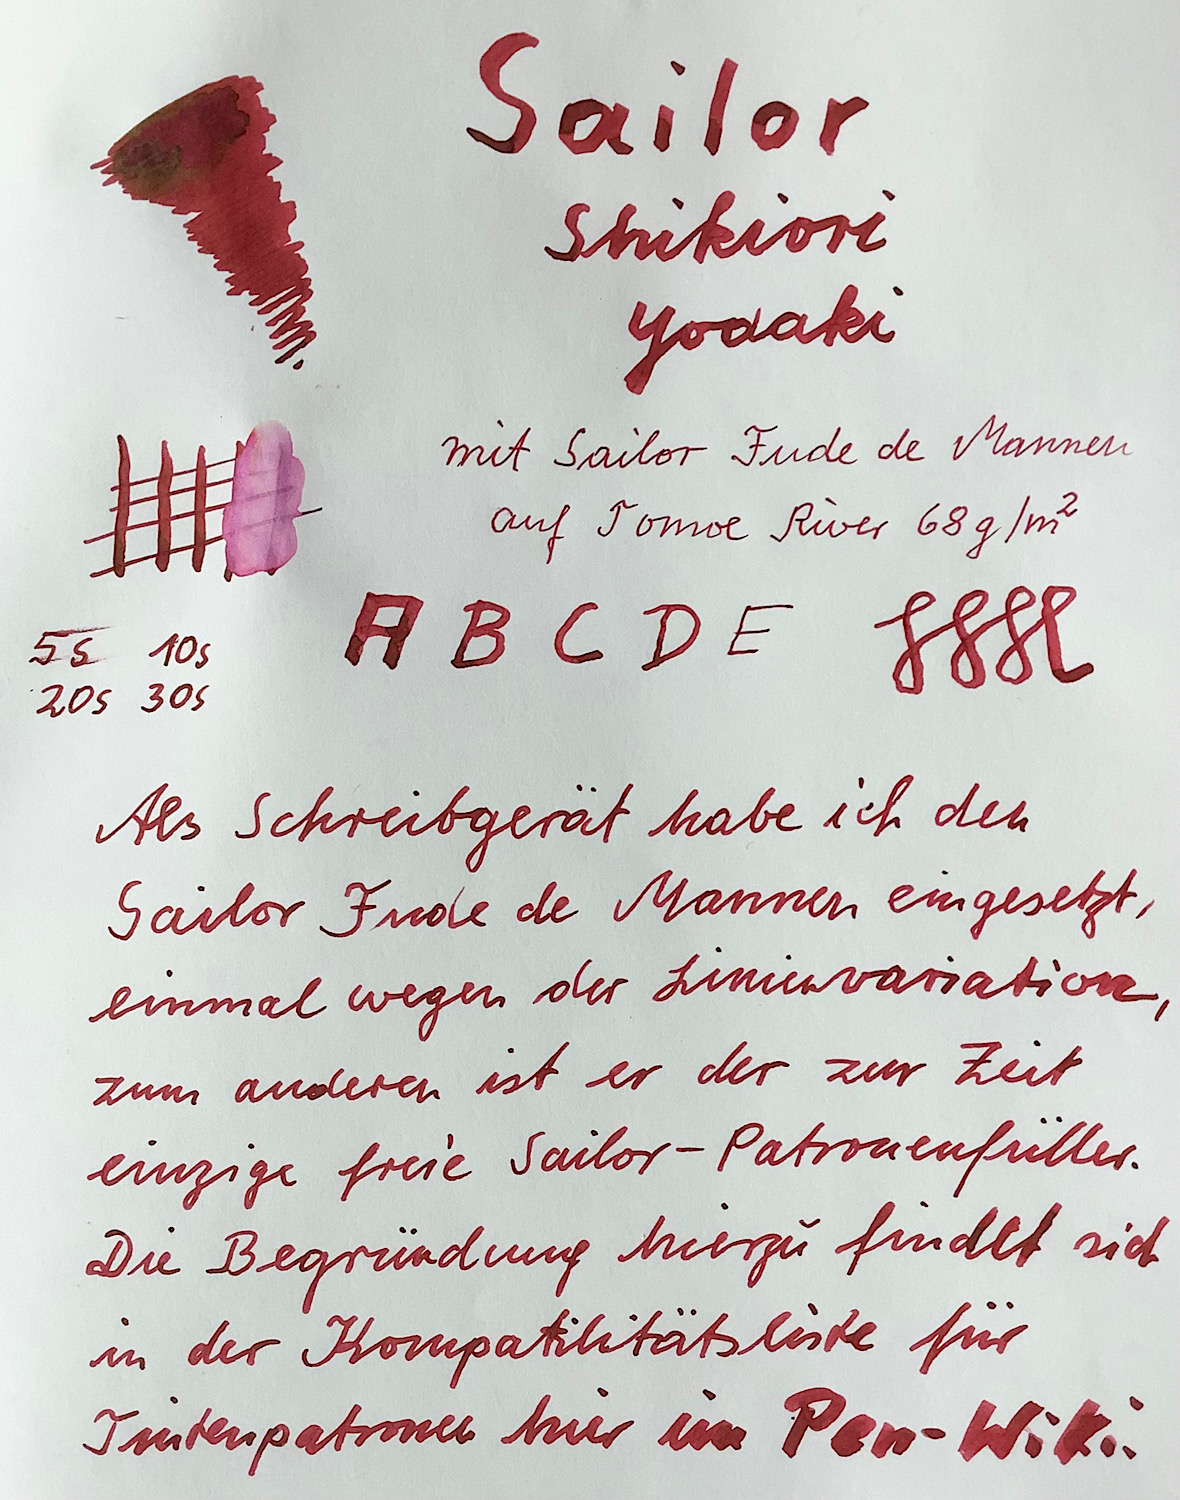 Sailor
Shikiori
Yodaki
mit Sailor Fude de Mannen
auf Tomoe River 68g/m²
A B C D E
5s 10s
20s 30s
Als Schreibgerät habe ich den
Sailor Fude de Mannen eingesetzt,
einmal wegen der Linienvariation,
zum anderen ist er der zur Zeit
einzige freie Sailor-Patronenfüller.
Die Begründung hierzu findet sich
in der Kompatilitätsliste für
Tintenpatronen hier im Pen-Wiki.